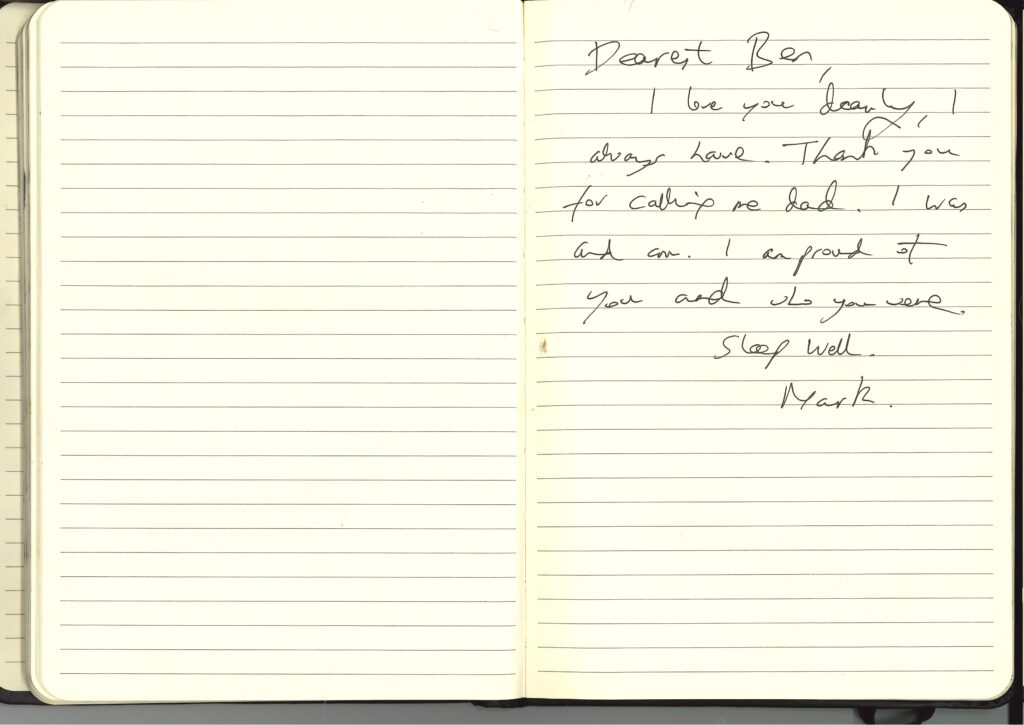 Dearest Ben,
I love you dearly, I
always have. Thank you
for calling me dad. I was
and am. I am proud of
you and who you were.
Sleep well.
Mark.